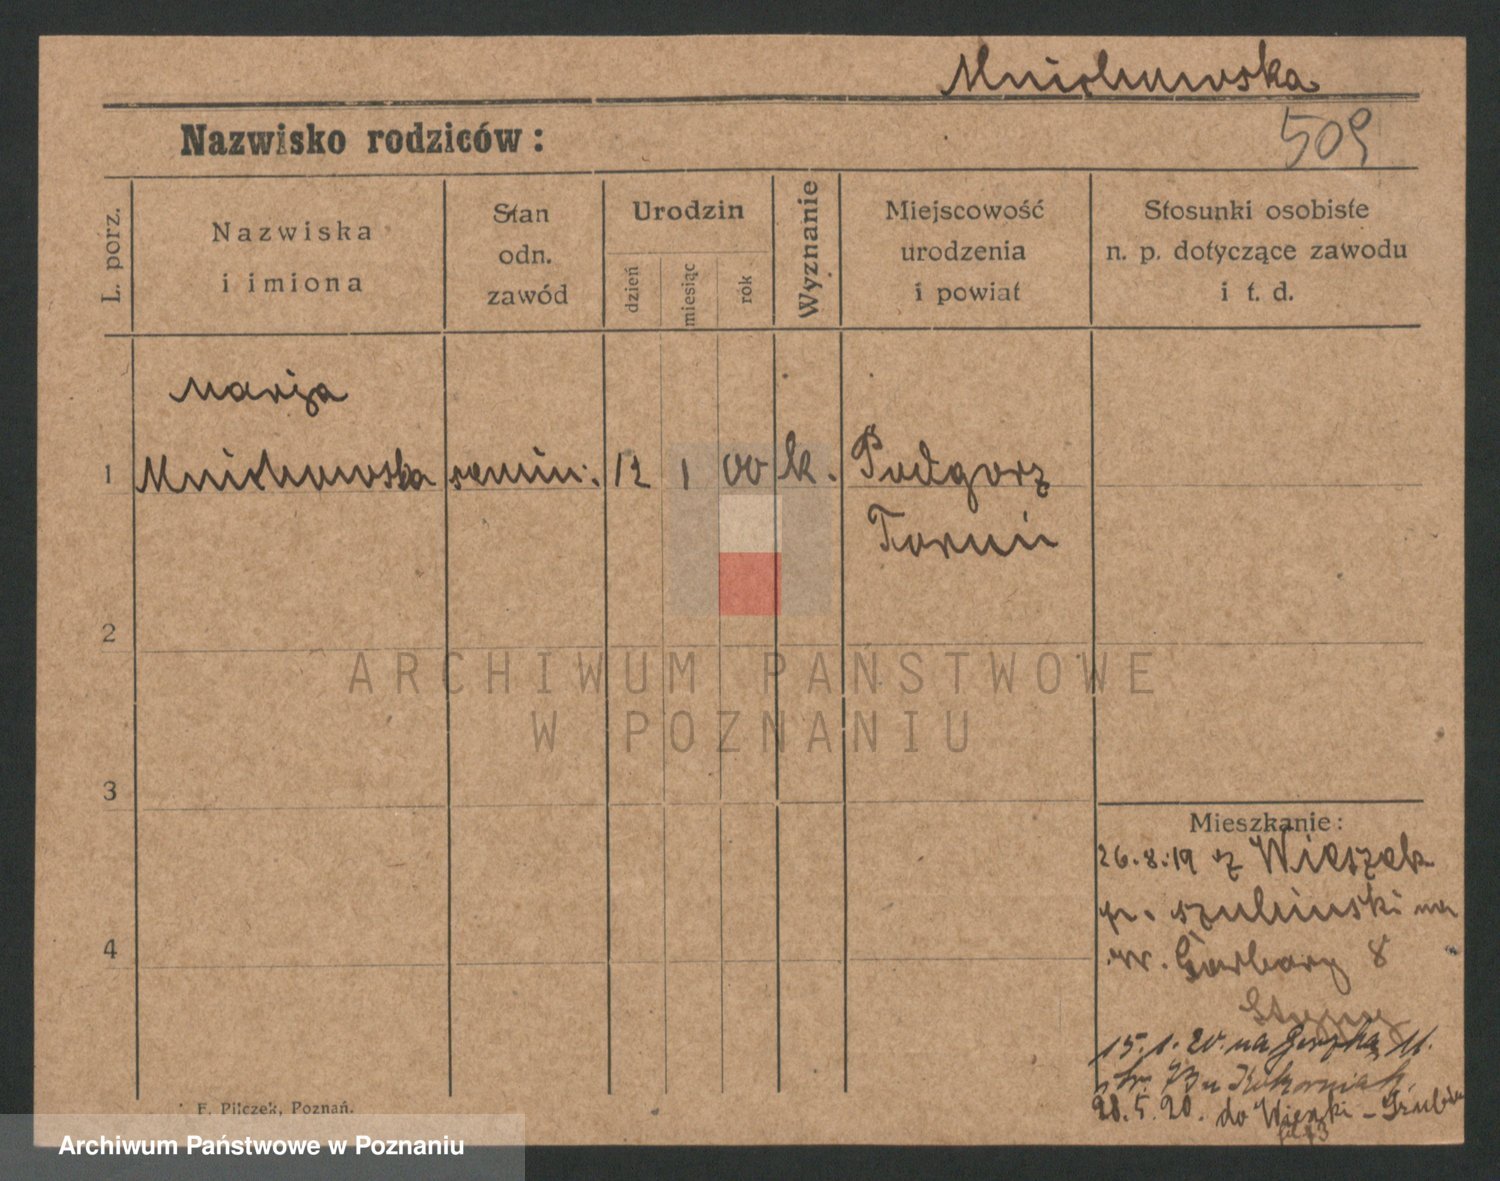 Mnichowska
Nazwisko rodziców:
509
L. porz.
Nazwiska
i imiona
Stan
odn.
zawód
Urodzin
dzień
miesiąc
rok
Wyznanie
Miejscowość
urodzenia
i powiat
Stosunki osobiste
n. p. dotyczące zawodu
i t. d.
Marja
1 Mnichowska semin. 12 1 00 k. Podgorz
Toruń
2
ARCHIWUM PAŃSTWOWE
W POZNANIU
3
Mieszkanie:
26.8.19 z Wieszek
p. szubiński na
W. Garbary 8
4
15.1.20. na
73 u
28.5.20. do
F. Pilczek, Poznań.
Archiwum Państwowe w Poznaniu